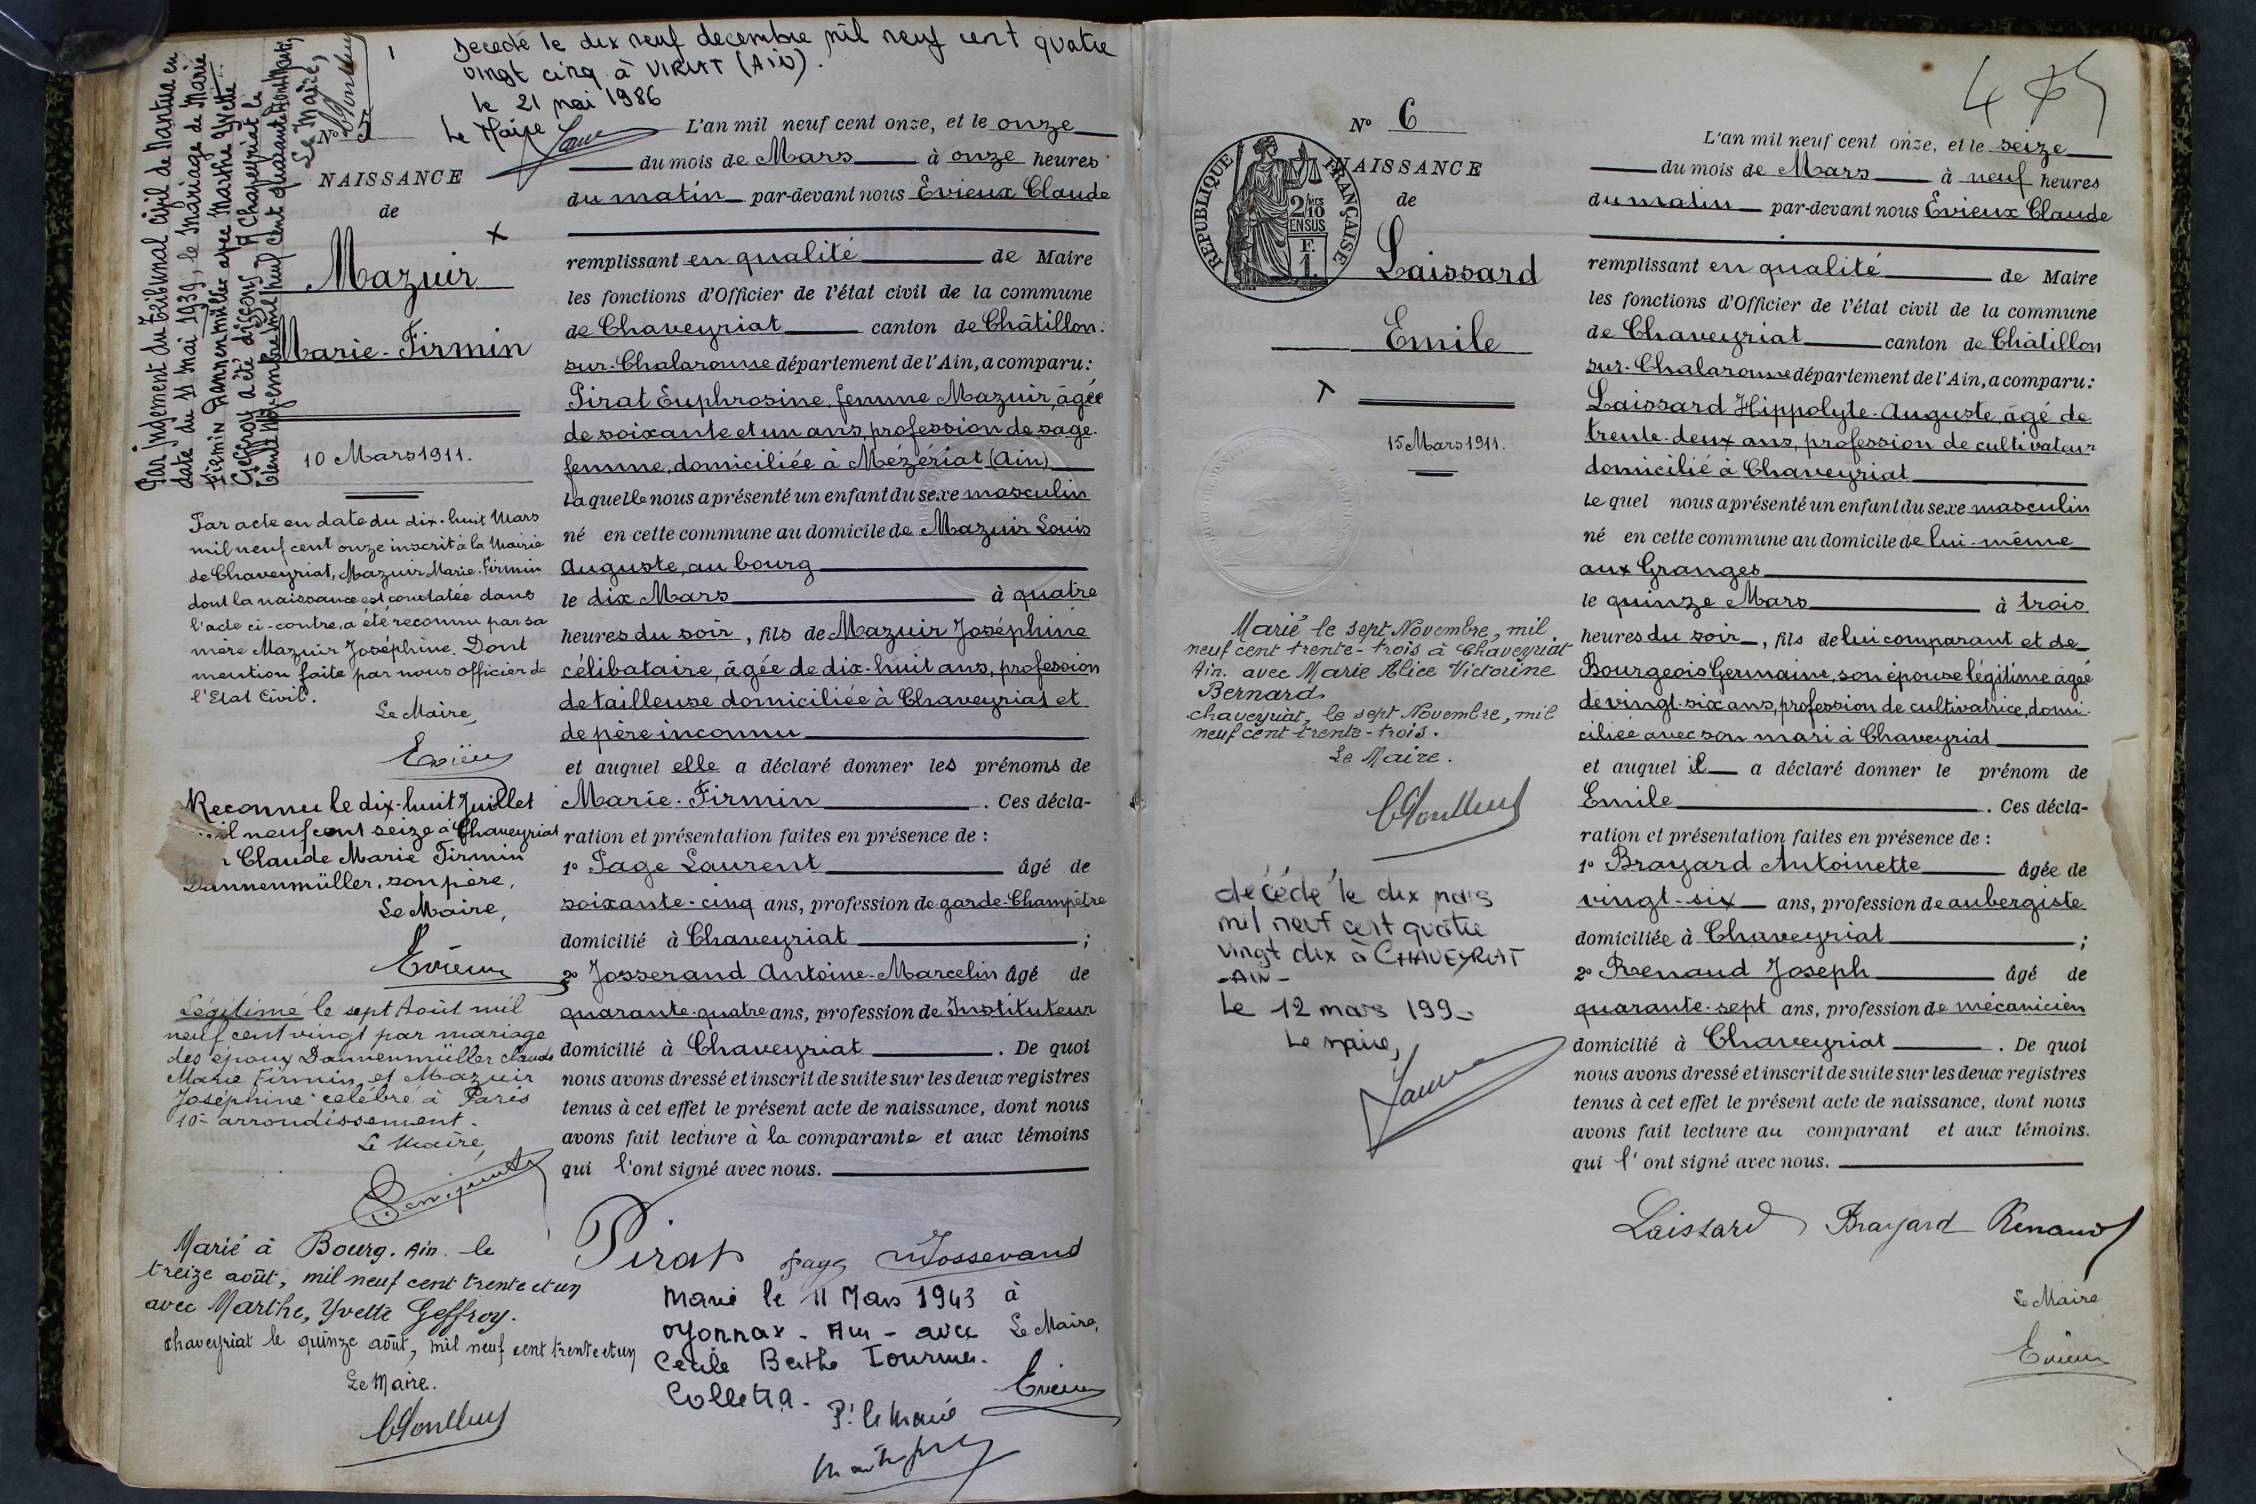 Par jugement du Tribunal Civil de Nantua en
date du 11 mai 1939, le mariage de Marie
Firmin Dannenmüller avec Marthe Yvette
Geffroy a été dissous. A Chaveyriat le
trente novembre mil neuf cent quarante
Le Maire,
Décédé le dix neuf decembre mil neuf cent quatre
vingt cinq à VIRIAT (AIN).
le 21 mai 1986
Le Maire
N° 5
NAISSANCE
de
Mazuir
Marie-Firmin
10 Mars 1911.
Par acte en date du dix-huit Mars
mil neuf cent onze inscrit à la Mairie
de Chaveyriat, Mazuir Marie-Firmin
dont la naissance est constatée dans
l'acte ci-contre, a été reconnu par sa
mère Mazuir Joséphine. Dont
mention faite par nous officier de
l'Etat Civil.
Le Maire,
Evieux
Reconnu le dix-huit Juillet
mil neuf cent seize à Chaveyriat
Claude Marie Firmin
Dannenmüller, son père,
Le Maire,
Evieux
Légitimé le sept Août mil
neuf cent vingt par mariage
des époux Dannenmüller Claude
Marie Firmin et Mazuir
Joséphine célébré à Paris
10e arrondissement.
Le Maire,
Marié à Bourg. Ain. le
treize août, mil neuf cent trente et un
avec Marthe, Yvette Geffroy.
Chaveyriat le quinze août, mil neuf cent trente et un
Le Maire.
L'an mil neuf cent onze, et le onze
du mois de Mars à onze heures
du matin par-devant nous Evieux Claude
remplissant en qualité de Maire
les fonctions d'Officier de l'état civil de la commune
de Chaveyriat canton de Châtillon-
sur-Chalaronne département de l'Ain, a comparu:
Pirat Euphrosine, femme Mazuir, âgée
de soixante et un ans, profession de sage-
femme, domiciliée à Mézériat (Ain)
laquelle nous a présenté un enfant du sexe masculin
né en cette commune au domicile de Mazuir Louis
Auguste, au bourg
le dix Mars à quatre
heures du soir, fils de Mazuir Joséphine
célibataire, âgée de dix-huit ans, profession
de tailleuse domiciliée à Chaveyriat et
de père inconnu
et auquel elle a déclaré donner les prénoms de
Marie-Firmin . Ces décla-
ration et présentation faites en présence de :
1° Page Laurent âgé de
soixante-cinq ans, profession de garde-Champêtre
domicilié à Chaveyriat ;
2° Josserand Antoine-Marcelin âgé de
quarante-quatre ans, profession de Instituteur
domicilié à Chaveyriat . De quoi
nous avons dressé et inscrit de suite sur les deux registres
tenus à cet effet le présent acte de naissance, dont nous
avons fait lecture à la comparante et aux témoins
qui l'ont signé avec nous.
Pirat Page Josserand
Marié le 11 Mars 1943 à
Oyonnax - Ain - avec
Cécile Berthe
Colletta.
Le Maire,
Evieux
P. le Maire
N° 6
NAISSANCE
de
REPUBLIQUE FRANÇAISE
2/10 MES
EN SUS
F.
1.
Laissard
Emile
15 Mars 1911.
Marié le sept Novembre, mil
neuf cent trente-trois à Chaveyriat
Ain. avec Marie Alice Victorine
Bernard
Chaveyriat, le sept Novembre, mil
neuf cent trente-trois.
Le Maire.
décédé le dix mars
mil neuf cent quatre
vingt dix à CHAVEYRIAT
- AIN -
Le 12 mars 1990
Le maire,
L'an mil neuf cent onze, et le seize
du mois de Mars à neuf heures
du matin par-devant nous Evieux Claude
remplissant en qualité de Maire
les fonctions d'Officier de l'état civil de la commune
de Chaveyriat canton de Châtillon
sur-Chalaronne département de l'Ain, a comparu:
Laissard Hippolyte-Auguste, âgé de
trente-deux ans, profession de cultivateur
domicilié à Chaveyriat
lequel nous a présenté un enfant du sexe masculin
né en cette commune au domicile de lui-même
aux Granges
le quinze Mars à trois
heures du soir, fils de lui comparant et de
Bourgeois Germaine, son épouse légitime âgée
de vingt-six ans, profession de cultivatrice, domi-
ciliée avec son mari à Chaveyriat
et auquel il a déclaré donner le prénom de
Emile . Ces décla-
ration et présentation faites en présence de :
1° Brayard Antoinette âgée de
vingt-six ans, profession de aubergiste
domiciliée à Chaveyriat ;
2° Renaud Joseph âgé de
quarante-sept ans, profession de mécanicien
domicilié à Chaveyriat . De quoi
nous avons dressé et inscrit de suite sur les deux registres
tenus à cet effet le présent acte de naissance, dont nous
avons fait lecture au comparant et aux témoins.
qui l'ont signé avec nous.
Laissard Brayard Renaud
Le Maire
Evieux